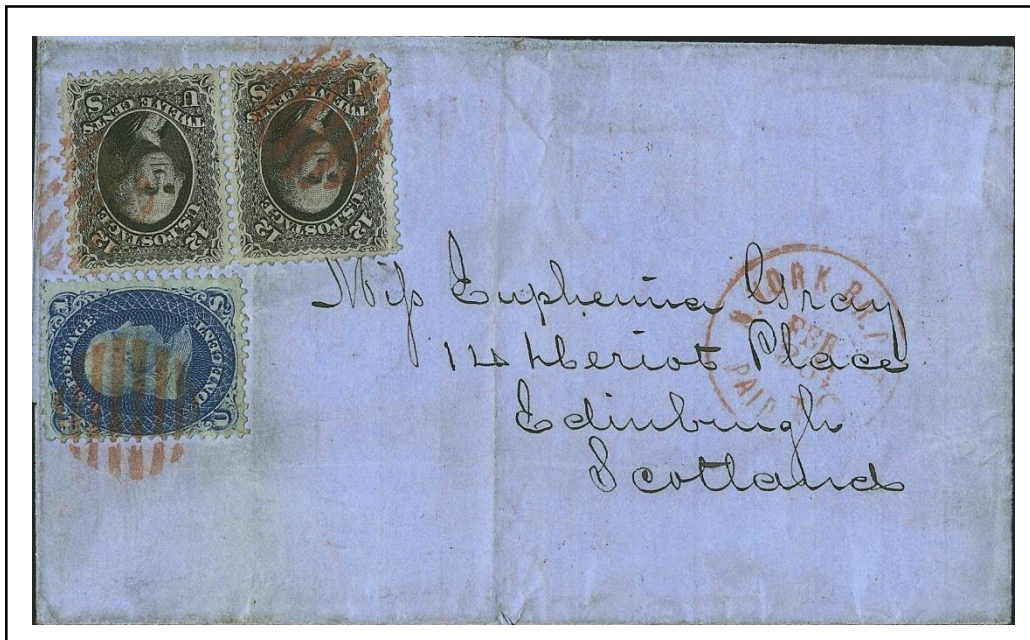 12 U.S.POSTAGE 12
TWELVE CENTS
U S
12 U.S.POSTAGE 12
TWELVE CENTS
U S
U.S.POSTAGE
ONE CENT
U S
Miss Euphemia Gray
14 Heriot Place
Edinburgh
Scotland
N. YORK
PAID